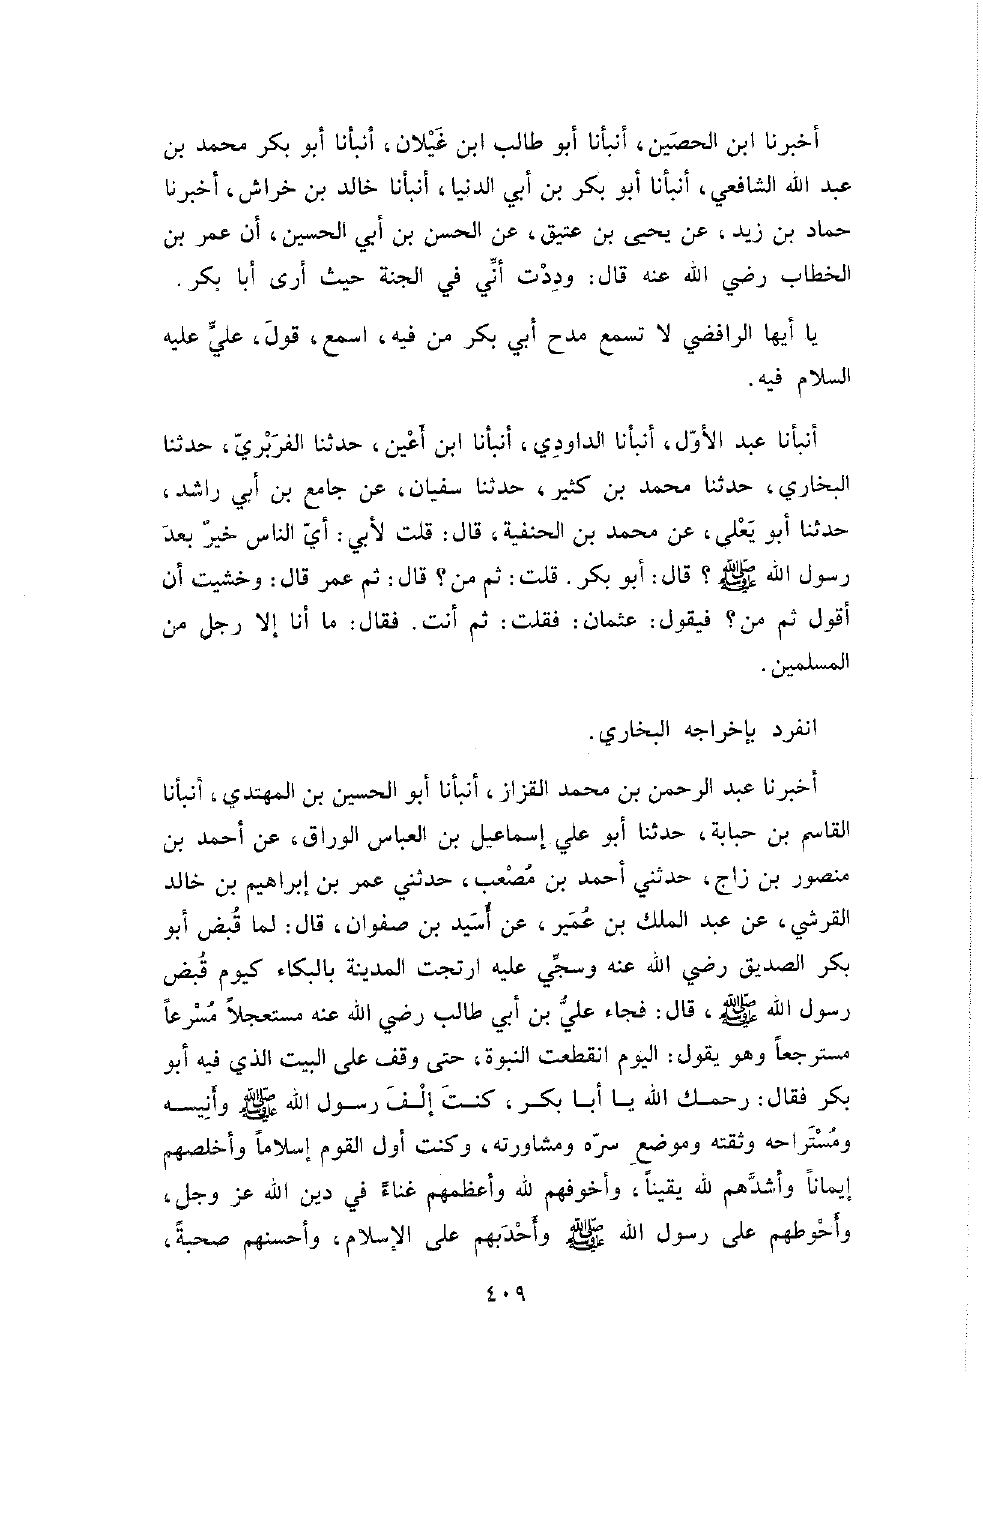 أخبرنا ابن الحصَين، أنبأنا أبو طالب ابن غَيْلان، أنبأنا أبو بكر محمد بن
عبد الله الشافعي، أنبأنا أبو بكر بن أبي الدنيا، أنبأنا خالد بن خراش، أخبرنا
حماد بن زيد، عن يحيى بن عتيق، عن الحسن بن أبي الحسين، أن عمر بن
الخطاب رضي الله عنه قال: ودِدْت أنِّي في الجنة حيث أرى أبا بكر.
يا أيها الرافضي لا تسمع مدح أبي بكر من فيه، اسمع، قولَ، عليٍّ عليه
السلام فيه.
أنبأنا عبد الأوّل، أنبأنا الداودِي، أنبأنا ابن أَعْين، حدثنا الفرَبْريّ، حدثنا
البخاري، حدثنا محمد بن كثير، حدثنا سفيان، عن جامع بن أبي راشد،
حدثنا أبو يَعْلى، عن محمد بن الحنفية، قال: قلت لأبي: أيّ الناس خيرٌ بعدَ
رسول الله ﷺ؟ قال: أبو بكر. قلت: ثم من؟ قال: ثم عمر قال: وخشيت أن
أقول ثم من؟ فيقول: عثمان: فقلت: ثم أنت. فقال: ما أنا إلا رجل من
المسلمين.
انفرد بإخراجه البخاري.
أخبرنا عبد الرحمن بن محمد القزاز، أنبأنا أبو الحسين بن المهتدي، أنبأنا
القاسم بن حبابة، حدثنا أبو علي إسماعيل بن العباس الوراق، عن أحمد بن
منصور بن زاج، حدثني أحمد بن مُصْعب، حدثني عمر بن إبراهيم بن خالد
القرشي، عن عبد الملك بن عُمَير، عن أُسَيد بن صفوان، قال: لما قُبض أبو
بكر الصديق رضي الله عنه وسجِّي عليه ارتجت المدينة بالبكاء كيوم قُبض
رسول الله ﷺ، قال: فجاء عليُّ بن أبي طالب رضي الله عنه مستعجلاً مُسْرعاً
مسترجعاً وهو يقول: اليوم انقطعت النبوة، حتى وقف على البيت الذي فيه أبو
بكر فقال: رحمك الله يا أبا بكر، كنتَ إلْفَ رسول الله ﷺ وأنيسه
ومُسْتَراحه وثقته وموضعِ سرّه ومشاورته، وكنت أول القوم إسلاماً وأخلصهم
إيماناً وأشدَّهم لله يقيناً، وأخوفهم لله وأعظمهم غناءً في دين الله عز وجل،
وأَحْوطهم على رسول الله ﷺ وأَحْدَبهم على الإسلام، وأحسنهم صحبةً،
٤٠٩